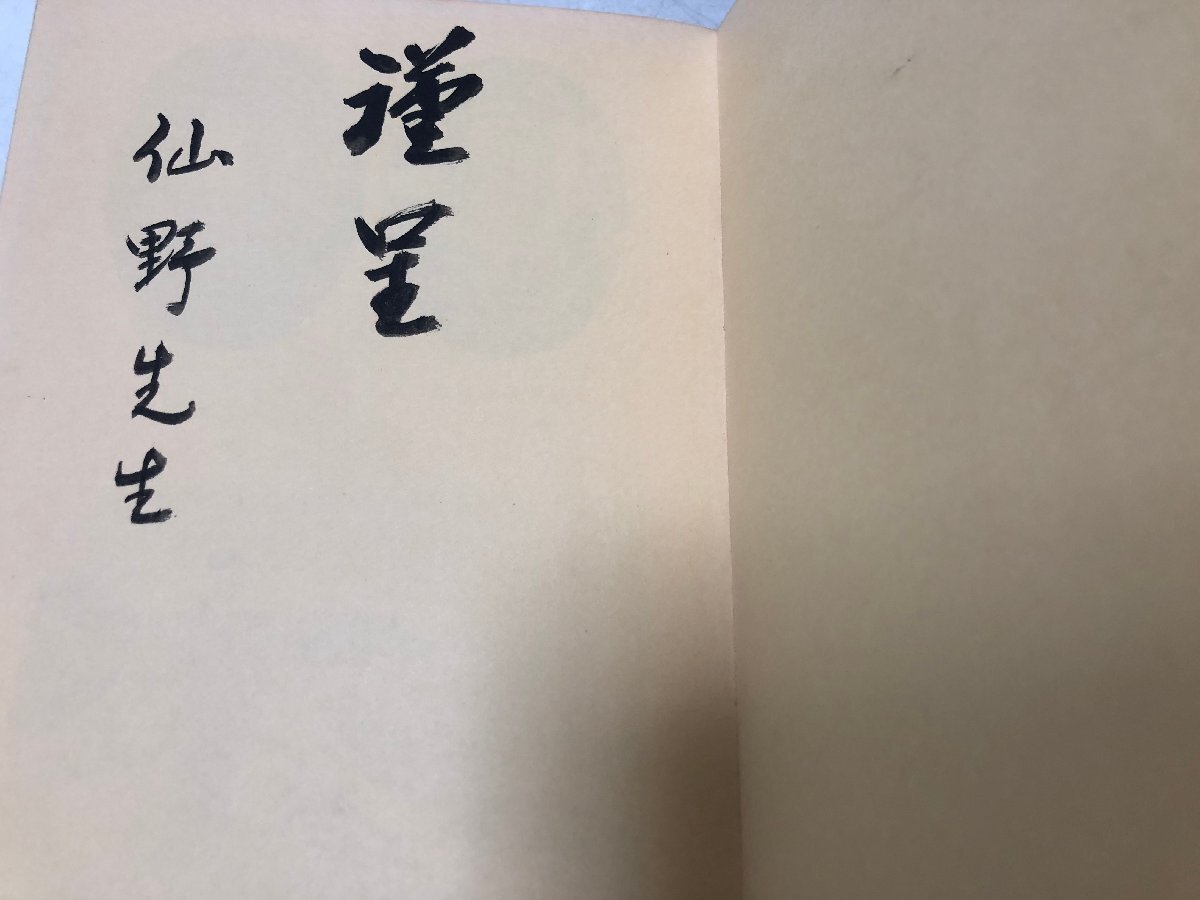 謹呈
仙野先生